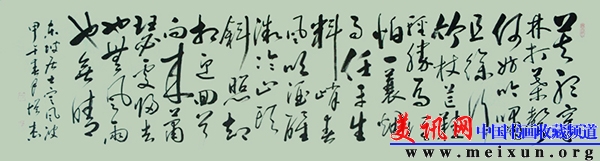 莫聽穿
林打葉聲
何妨吟嘯
且徐行
竹杖芒鞋
輕勝馬誰
怕一蓑烟
雨任平生
料峭春
風吹酒醒
微冷山頭
斜照却
相迎回首
向来蕭
瑟處歸去
也無風雨
也無晴
东坡居士定風波
甲午春月
美讯网 中国书画收藏频道
www.meixun.org